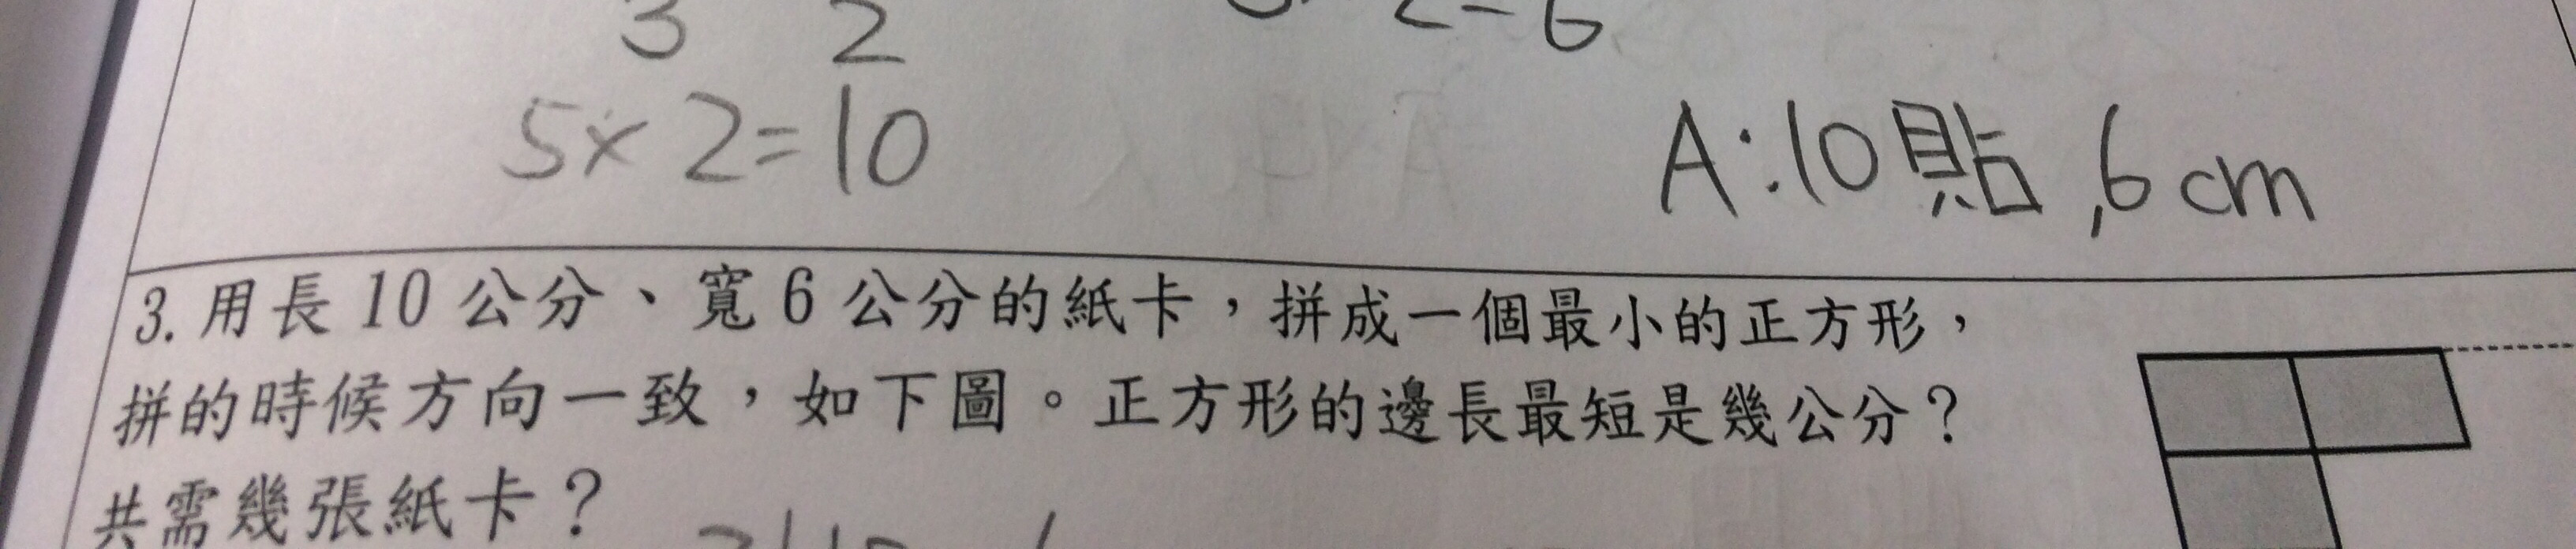 3 2
2=6
5×2=10
A:10貼,6cm
3.用長10公分、寬6公分的紙卡,拼成一個最小的正方形,
拼的時候方向一致,如下圖。正方形的邊長最短是幾公分?
共需幾張紙卡?